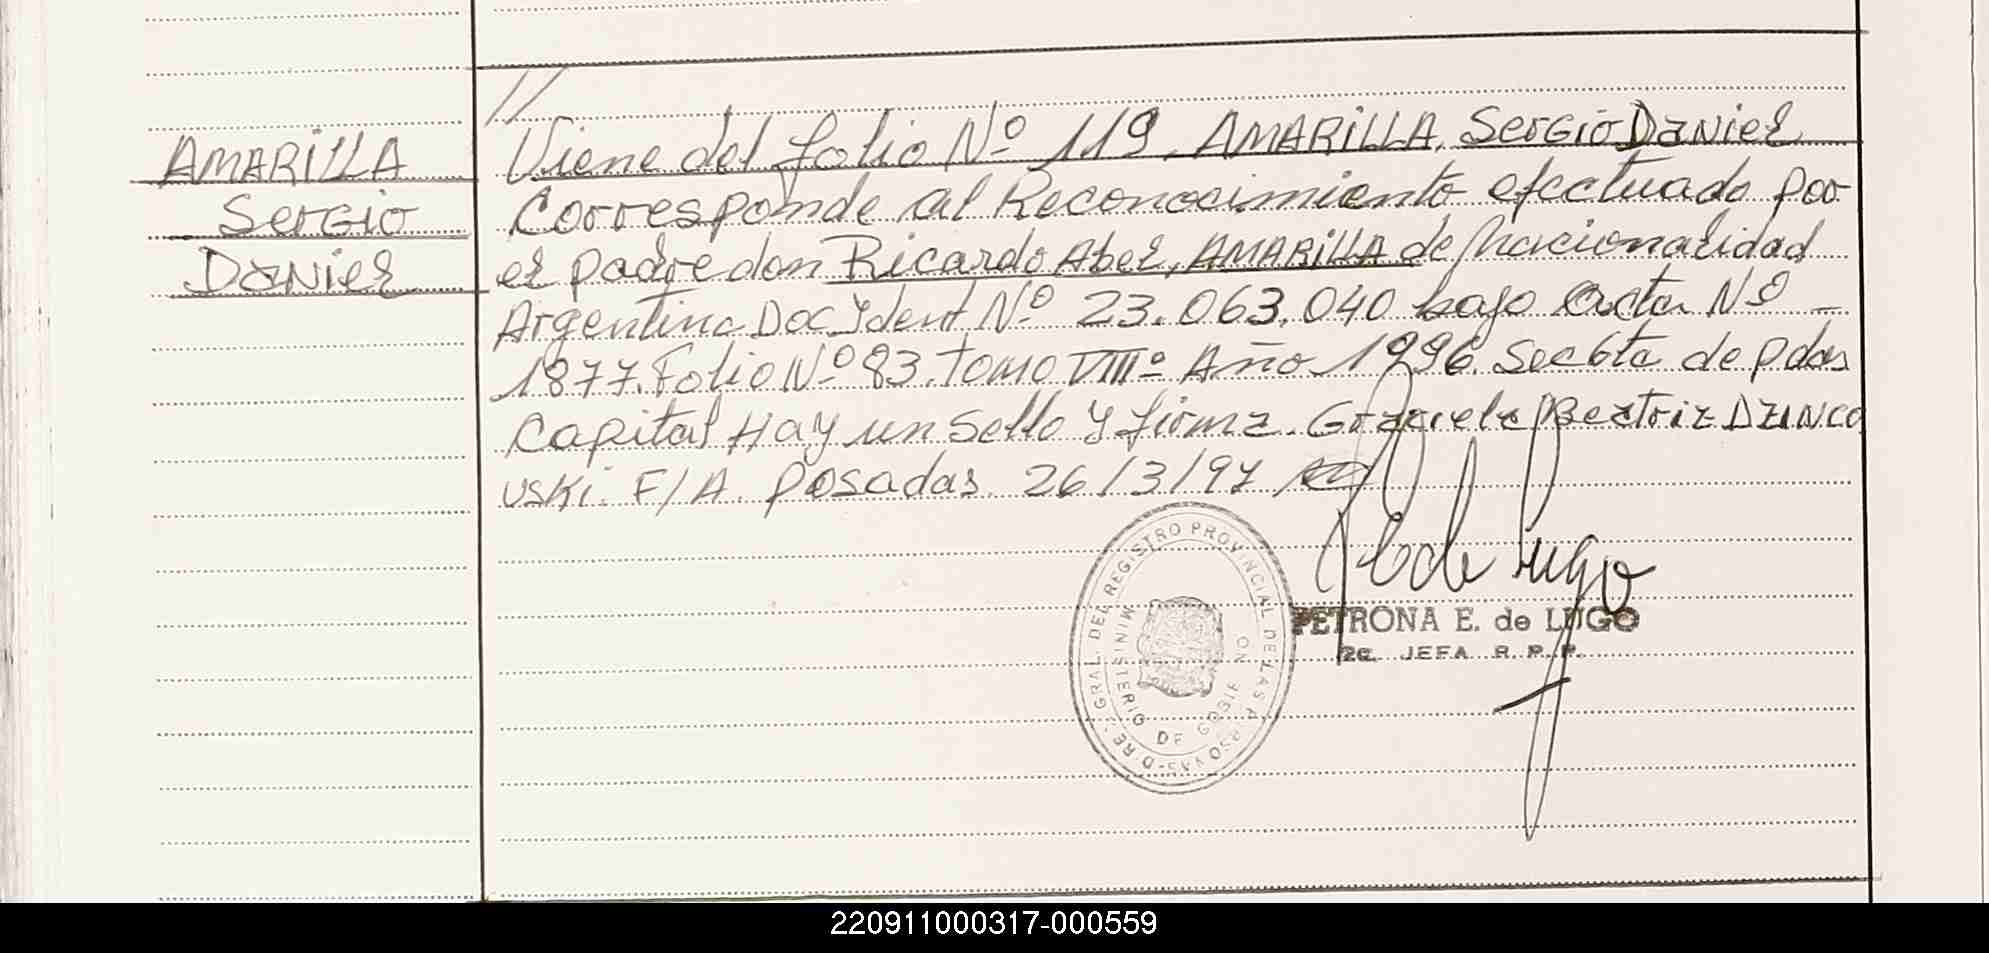 AMARILLA
Sergio
Daniel
//
Viene del folio Nº 119, AMARILLA, Sergio Daniel
Corresponde al Reconocimiento efectuado por
el padre don Ricardo Abel, AMARILLA de Nacionalidad
Argentina Doc Ydent Nº 23.063.040 bajo acta Nº -
1877. Folio Nº 83. tomo VIIIº Año 1996. Sec 6ta de Pdas
Capital Hay un Sello y firma. Graciela Beatriz DZINCO
USKi. F/A. Posadas. 26/3/97
PETRONA E. de LUGO
2a. JEFA R.P.P.
DIRE. GRAL. DEL REGISTRO PROVINCIAL DE LAS PERSONAS
MINISTERIO DE GOBIERNO
220911000317-000559